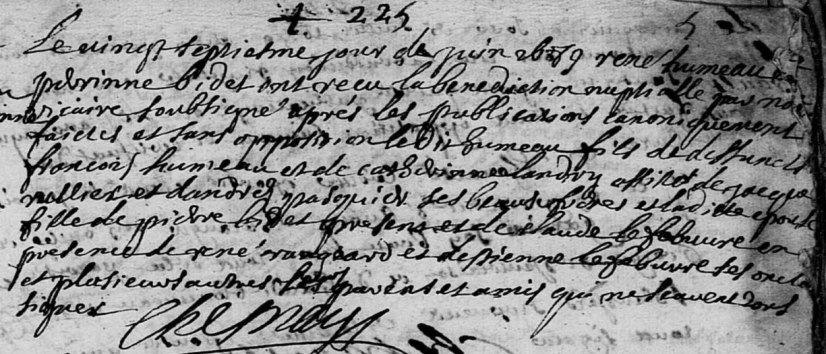 225
Le vingt septiesme jour de juin 1679 rené humeau et
perrinne bidet ont receu la benediction nuptialle par nous
vicaire soubsigné aprés les publications canoniquement
faictes et sans opposition ledit humeau fils de deffuncts
francois humeau et de catherinne landry assisté de jacque
et dandré pasquier ses beaux freres et laditte epouse
fille de pierre bidet present et de claude lefebuvre en
presence de rené et destienne lefebuvre ses oncles
et plusieurs autres leurs parents et amis qui ne scavent
signer